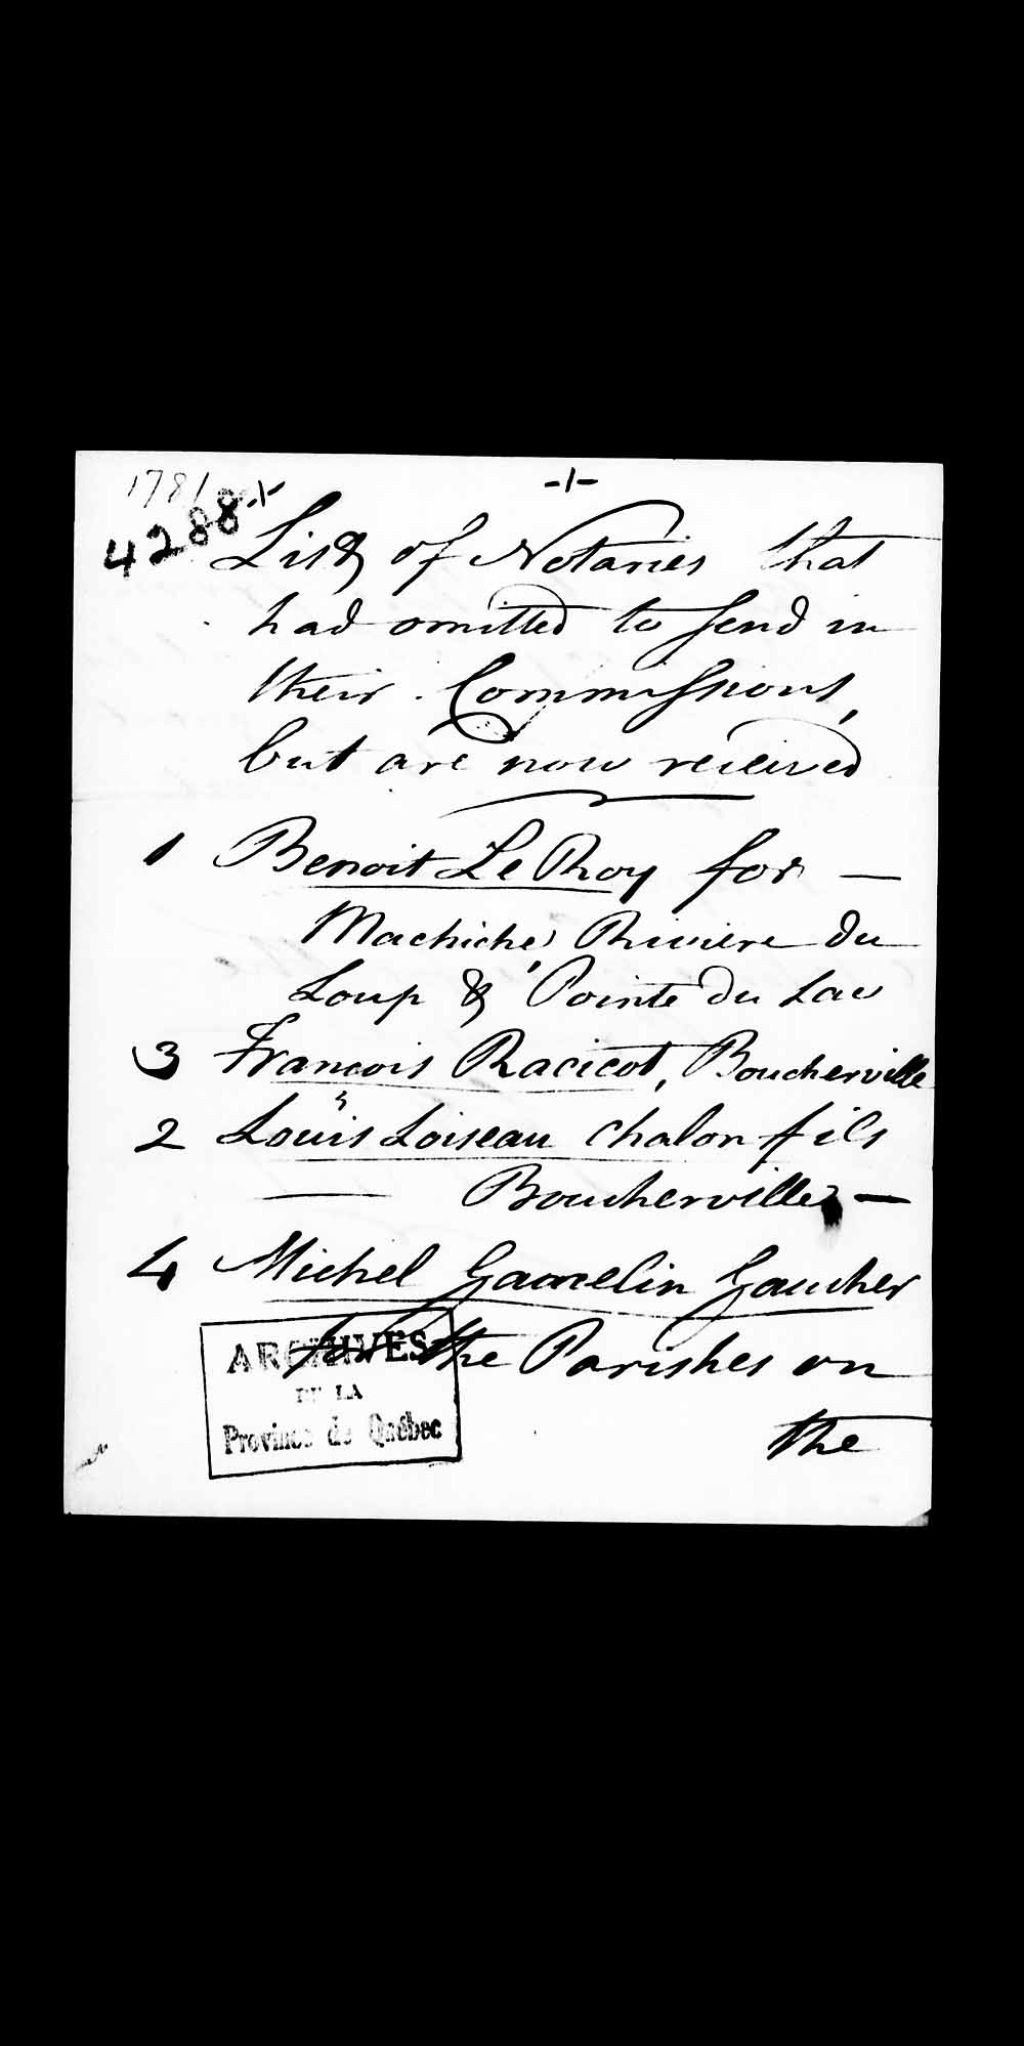 -1-
1781
4288-1-
List of Notaries that
had omitted to send in
their Commissions,
but are now received
1 Benoit Le Roy for —
Machiche, Riviere du
Loup & Pointe du Lac
3 Francois Racicot, Boucherville
2 Louis Loiseau Chalon fils
— Boucherville —
4 Michel Gamelin Gaucher
for the Parishes on
the
ARCHIVES
DE LA
Province de Québec